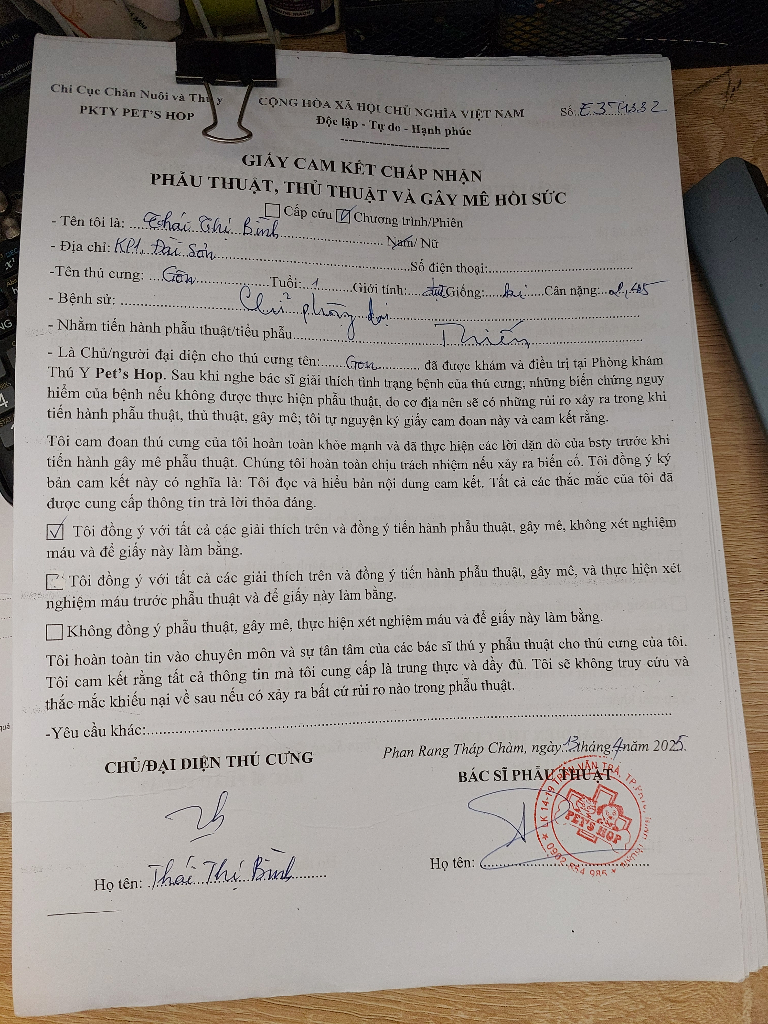 Chi Cục Chăn Nuôi và Thú y
PKTY PET'S HOP
CỘNG HÒA XÃ HỘI CHỦ NGHĨA VIỆT NAM
Độc lập - Tự do - Hạnh phúc
Số: E354332
GIẤY CAM KẾT CHẤP NHẬN
PHẪU THUẬT, THỦ THUẬT VÀ GÂY MÊ HỒI SỨC
Cấp cứu Chương trình/Phiên
- Tên tôi là: Thái Thị Bình Nam/ Nữ
- Địa chỉ: KP1, Đài Sơn Số điện thoại:
-Tên thú cưng: Gòn Tuổi: 1 Giới tính: Giống: Cân nặng:
- Bệnh sử: Chủ phòng đại
- Nhằm tiến hành phẫu thuật/tiểu phẫu Thiến
- Là Chủ/người đại diện cho thú cưng tên: Gòn đã được khám và điều trị tại Phòng khám
Thú Y Pet's Hop. Sau khi nghe bác sĩ giải thích tình trạng bệnh của thú cưng; những biến chứng nguy
hiểm của bệnh nếu không được thực hiện phẫu thuật, do cơ địa nên sẽ có những rủi ro xảy ra trong khi
tiến hành phẫu thuật, thủ thuật, gây mê; tôi tự nguyện ký giấy cam đoan này và cam kết rằng.
Tôi cam đoan thú cưng của tôi hoàn toàn khỏe mạnh và đã thực hiện các lời dặn dò của bsty trước khi
tiến hành gây mê phẫu thuật. Chúng tôi hoàn toàn chịu trách nhiệm nếu xảy ra biến cố. Tôi đồng ý ký
bản cam kết này có nghĩa là: Tôi đọc và hiểu bản nội dung cam kết. Tất cả các thắc mắc của tôi đã
được cung cấp thông tin trả lời thỏa đáng.
Tôi đồng ý với tất cả các giải thích trên và đồng ý tiến hành phẫu thuật, gây mê, không xét nghiệm
máu và để giấy này làm bằng.
Tôi đồng ý với tất cả các giải thích trên và đồng ý tiến hành phẫu thuật, gây mê, và thực hiện xét
nghiệm máu trước phẫu thuật và để giấy này làm bằng.
Không đồng ý phẫu thuật, gây mê, thực hiện xét nghiệm máu và để giấy này làm bằng.
Tôi hoàn toàn tin vào chuyên môn và sự tân tâm của các bác sĩ thú y phẫu thuật cho thú cưng của tôi.
Tôi cam kết rằng tất cả thông tin mà tôi cung cấp là trung thực và đầy đủ. Tôi sẽ không truy cứu và
thắc mắc khiếu nại về sau nếu có xảy ra bất cứ rủi ro nào trong phẫu thuật.
-Yêu cầu khác:
Phan Rang Tháp Chàm, ngày 13 tháng 4 năm 2025.
CHỦ/ĐẠI DIỆN THÚ CƯNG
BÁC SĨ PHẪU THUẬT
LK 14-19 TRẦN VĂN TRÀ, TP.
PET'S HOP
Họ tên: Thái Thị Bình
Họ tên: